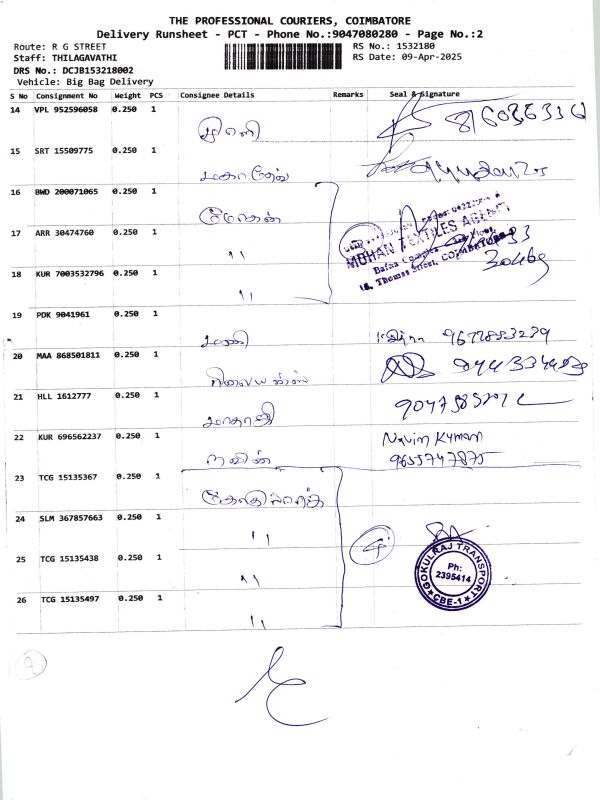 THE PROFESSIONAL COURIERS, COIMBATORE
Delivery Runsheet - PCT - Phone No.:9047080280 - Page No.:2
Route: R G STREET
Staff: THILAGAVATHI
DRS No.: DCJB153218002
Vehicle: Big Bag Delivery
RS No.: 1532180
RS Date: 09-Apr-2025
S No Consignment No Weight PCS Consignee Details Remarks Seal & Signature
14 VPL 952596058 0.250 1
15 SRT 15509775 0.250 1
16 BWD 200071065 0.250 1 மோகன்
17 ARR 30474760 0.250 1 "
MOHAN TEXTILES AGENCY
18 KUR 7003532796 0.250 1 "
19 PDK 9041961 0.250 1 மணி
20 MAA 868501811 0.250 1 ரிலையன்ஸ்
21 HLL 1612777 0.250 1
22 KUR 696562237 0.250 1 நவின் Navin Kumar
9655747875
23 TCG 15135367 0.250 1 கோகுல்ராஜ்
24 SLM 367857663 0.250 1 "
25 TCG 15135438 0.250 1 "
GOKULRAJ TRANSPORT
Ph:
2395414
CBE-1
26 TCG 15135497 0.250 1 "